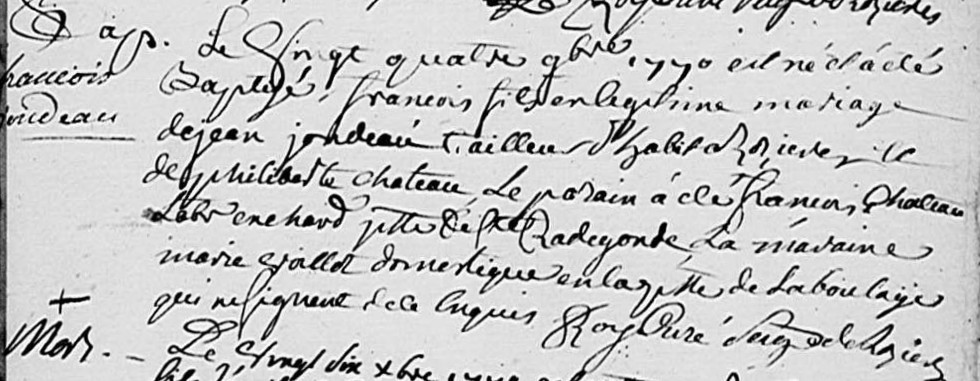 Bap.
francois
joudeau
Le Vingt quatre 9bre 1770 est né et a été
Baptisé francois fils en legitime mariage
de jean joudeau Tailleur d'habit a Rozieres et
de philiberte chateau Le parain á eté francois Chateau
Labr en chard ptte de Ste Radegonde La maraine
marie Goillot domestique en la ptte de Laboulaye
qui ne signent de ce Enquis Roy Curé
+
Mort.
Le Vingt six xbre